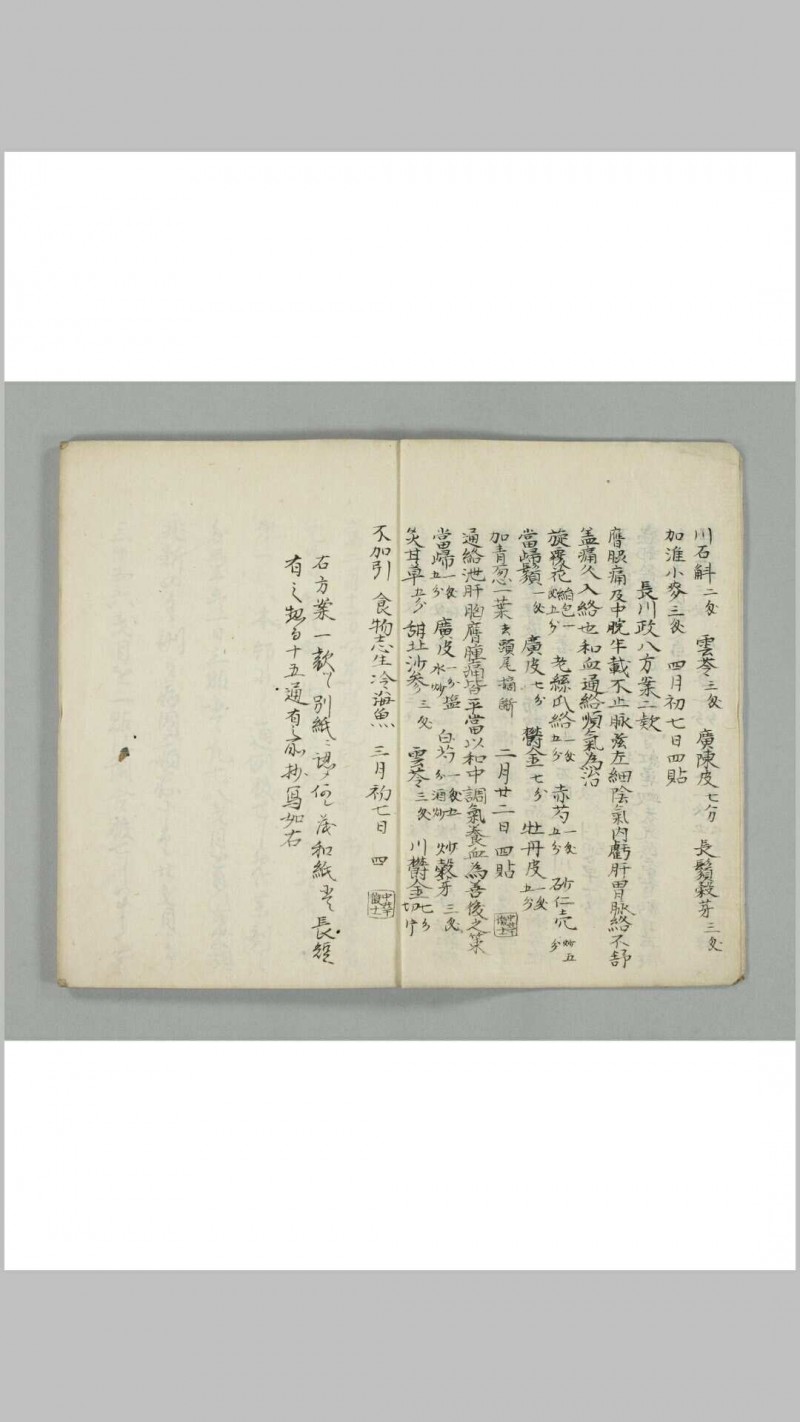 川石斛二戔 雲苓三戔 廣陳皮七分 長鬚穀芽三戔
加淮小麥三戔 四月初七日四貼
長川政八方案二款
膺脹痛及中脘半載不止脉弦左細陰氣内虧肝胃脉絡不舒
盖痛久入絡也和血通絡順氣為治
旋覆花五分絹包一戔 老絲瓜絡一戔五分 赤芍一戔五分 砂仁壳炒五分
當歸鬚一戔 廣皮七分 鬱金七分 牡丹皮一戔五分
加青葱一葉去頭尾摘断 二月廿二日四貼
通絡泄肝胸膺腫痛皆平當以和中調氣養血為善後之策
當歸一戔五分 廣皮一分塩水炒 白芍一戔五分酒炒 炒穀芽三戔
炙甘草五分 甜北沙參三戔 雲苓三戔 川鬱金七分切片
不加引 食物忌生冷海魚 三月初七日 四
右方案一款ツヽ別紙ニ認 和紙 長短
有之 十五通有之 抄寫如右